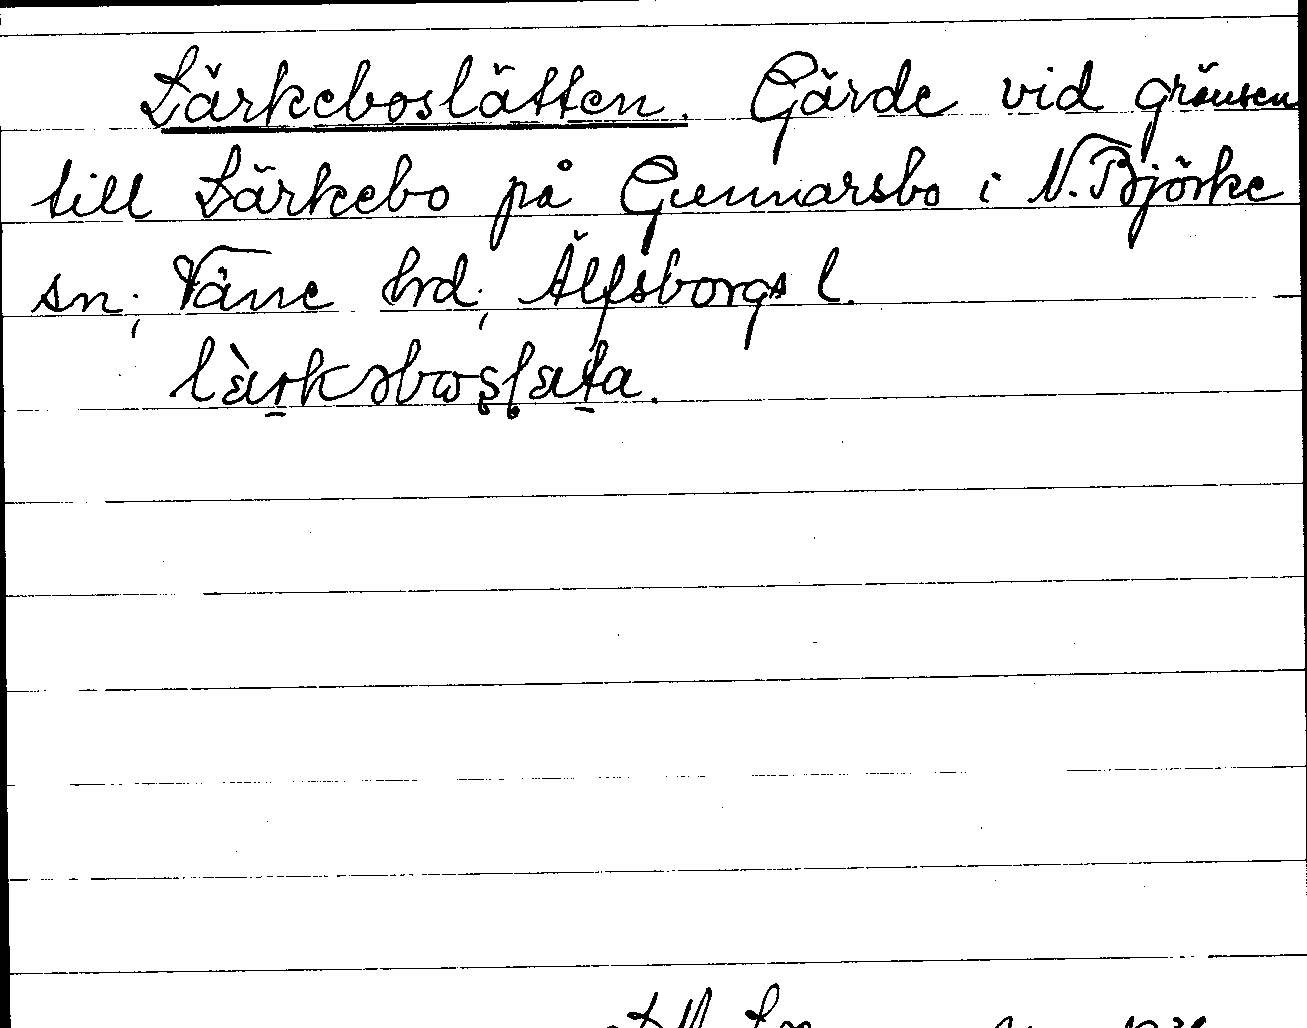 Lärkeboslätten. Gärde vid gränsen
till Lärkebo på Gunnarsbo i N. Björke
sn; Väne hrd; Älfsborgs l.